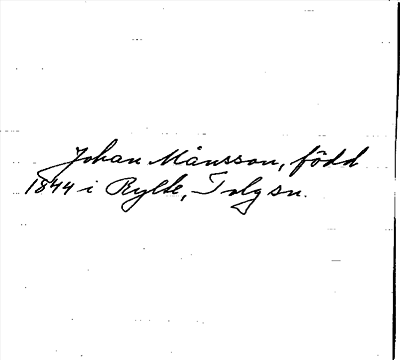 Johan Månsson, född
1844 i Rylte, Tolg sn.